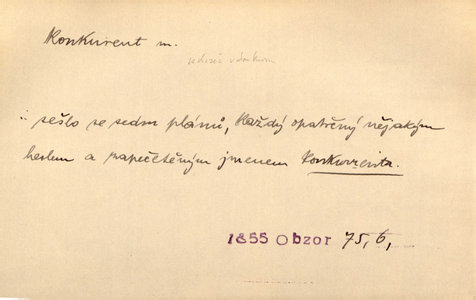 Konkurent m.
.. sešlo se sedm plánů, každý opatřený nějakým
heslem a zapečetěným jmenem konkurenta.
1855 Obzor 75, 6,